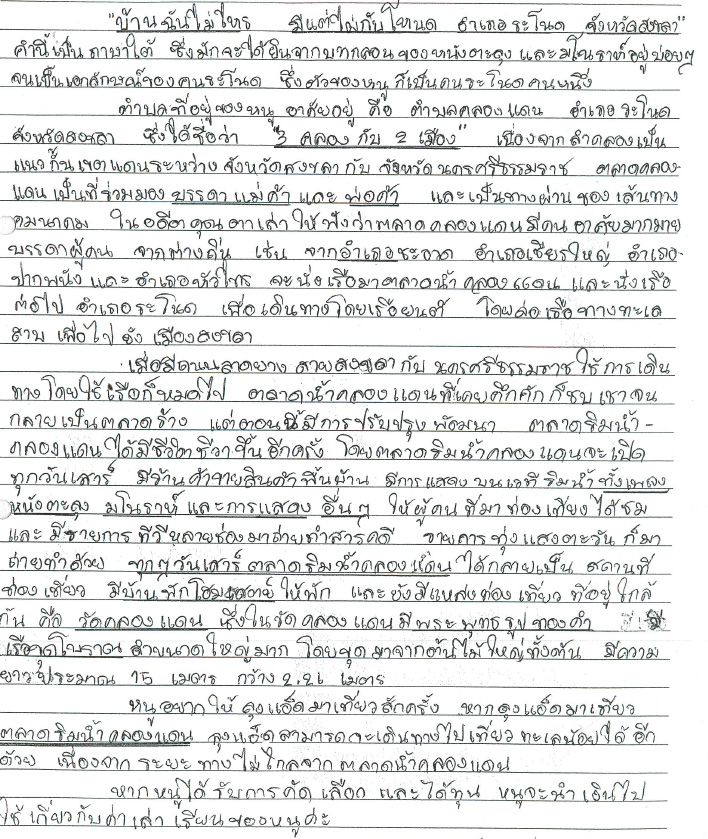 "บ้านฉันไม่ไกร มีแต่ไผ่กับโหนด อำเภอระโนด จังหวัดสงขลา"
คำนี้เป็นภาษาใต้ ซึ่งมักจะได้ยินจากบทกลอนของหนังตะลุง และมโนราห์อยู่บ่อยๆ
จนเป็นเอกลักษณ์ของคนระโนด ซึ่งตัวของหนูก็เป็นคนระโนดคนหนึ่ง
ตำบลที่อยู่ของหนู อาศัยอยู่ คือ ตำบลคลองแดน อำเภอระโนด
จังหวัดสงขลา ซึ่งได้ชื่อว่า "3 คลองกับ 2 เมือง" เนื่องจากลำคลองเป็น
แนวกั้นเขตแดนระหว่างจังหวัดสงขลากับ จังหวัดนครศรีธรรมราช ตลาดคลอง-
แดนเป็นที่ร่วมมอง บรรดาแม่ค้า และ พ่อค้า และเป็นทางผ่านของเส้นทาง
คมนาคม ในอดีตคุณตาเล่าให้ฟังว่าตลาดคลองแดนมีคนอาศัยมากมาย
บรรดาผู้คน จากต่างถิ่น เช่น จากอำเภอชะอวด อำเภอเชียรใหญ่ อำเภอ-
ปากพนัง และอำเภอหัวไทร จะนั่งเรือมาตลาดน้ำ คลองแดน และนั่งเรือ
ต่อไป อำเภอระโนด เพื่อเดินทางโดยเรือยนต์ โดยล่องเรือทางทะเล
สาบ เพื่อไปยัง เมืองสงขลา
เมื่อมีถนนลาดยาง สายสงขลากับ นครศรีธรรมราชใช้การเดิน
ทางโดยใช้เรือก็หมดไป ตลาดน้ำคลองแดนที่เคยคึกคักก็ซบเซาจน
กลายเป็นตลาดร้าง แต่ตอนนี้มีการปรับปรุงพัฒนา ตลาดริมน้ำ-
คลองแดน ได้มีชีวิตชีวาขึ้นอีกครั้ง โดยตลาดริมน้ำคลองแดนจะเปิด
ทุกวันเสาร์ มีร้านค้าขายสินค้าพื้นบ้าน มีการแสดงบนเวทีริมน้ำ ทั้งเพลง
หนังตะลุง มโนราห์ และการแสดง อื่นๆ ให้ผู้คนที่มาท่องเที่ยวได้ชม
และมีรายการ ทีวีหลายช่องมาถ่ายทำสารคดี รายการทุ่งแสงตะวัน ก็มา
ถ่ายทำด้วย ทุกๆวันเสาร์ตลาดริมน้ำคลองแดน ได้กลายเป็น สถานที่
ท่องเที่ยว มีบ้านพักโฮมสเตย์ ให้พัก และยังมีแหล่งท่องเที่ยว ที่อยู่ใกล้
กัน คือ วัดคลองแดน ซึ่งในวัดคลองแดนมีพระพุทธรูปทองคำ
เรือขุดโบราณ ลำขนาดใหญ่มาก โดยขุดมาจากต้นไม้ใหญ่ทั้งต้น มีความ
ยาวประมาณ 15 เมตร กว้าง 2.21 เมตร
หนูอยากให้ลุงแอ๊ดมาเที่ยวสักครั้ง หากลุงแอ๊ดมาเที่ยว
ตลาดริมน้ำคลองแดน ลุงแอ๊ดสามารถจะเดินทางไปเที่ยวทะเลน้อยได้อีก
ด้วย เนื่องจาก ระยะทางไม่ไกลจากตลาดน้ำคลองแดน
หากหนูได้รับการคัดเลือก และได้ทุน หนูจะนำเงินไป
ใช้เกี่ยวกับค่าเล่าเรียนของหนูค่ะ